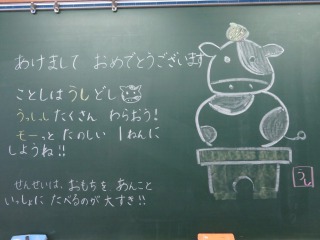 あけまして おめでとうございます
ことしは うしどし
うっしっし たくさん わらおう!
モーっと たのしい 1ねんに
しようね!!
せんせいは、おもちを あんこと
いっしょに たべるのが 大すき!!
うし